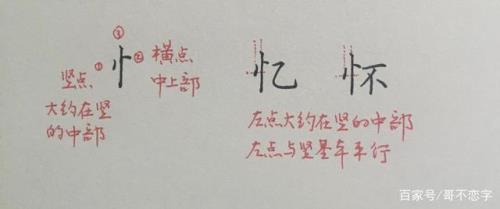 ③
竖点①
忄
②横点
中上部
大约在竖
的中部
忆 怀
左点大约在竖的中部
左点与竖基本平行
百家号/哥不恋字